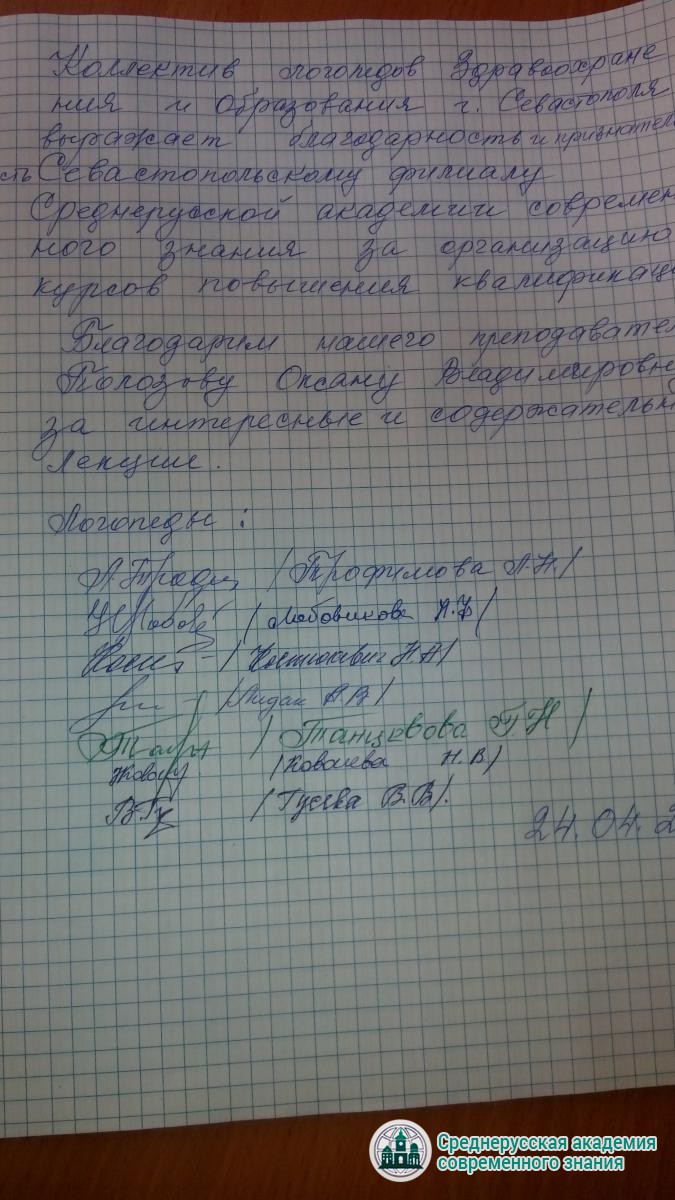 Коллектив логопедов Здравоохране
ния и Образования г. Севастополя
выражает благодарность и признатель
сть Севастопольскому филиалу
Среднерусской академии современ
ного знания за организацию
курсов повышения квалификаци
Благодарим нашего преподавател
Полозову Оксану Владимировн
за интересные и содержательн
лекции.
Логопеды:
/Трофимова Л.Н./
/Любовикова Л.Ф/
/Костюкевич Н.А/
/Танцевова Т Н/
/Ковалева Н.В/
/Гусева В.В/.
24.04.2
Среднерусская академия
современного знания